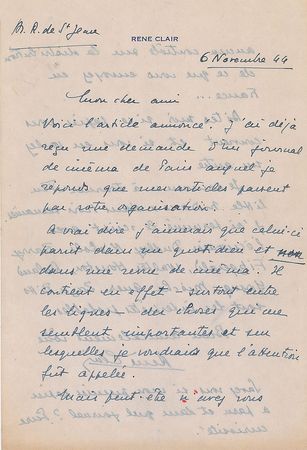 M. R. de St Jean
RENE CLAIR
6 Novembre 44
Mon cher ami
Voici l'article annoncé. J'ai déjà
reçu une demande d'un journal
de cinéma de Paris auquel je
réponds que mes articles passent
par votre organisation.
A vrai dire j'aimerais que celui-ci
parût dans un quotidien et non
dans une revue de cinéma. Il
contient en effet - surtout entre
les lignes - des choses qui me
semblent importantes et sur
lesquelles je voudrais que l'attention
fût appelée.
Mais peut-être n'avez vous